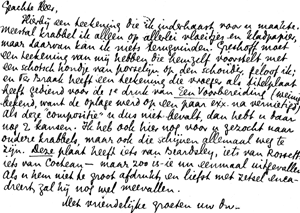 Geachte Roes,
Hierbij een teekening die ik inderhaast voor u maakte.
Meestal krabbel ik alleen op allerlei vloeitjes en kladpapier,
maar daarvan kan ik niets terugvinden. Greshoff moet
een teekening van mij hebben die hemzelf voorstelt met
een schotsch hondje van porselijn op den schouder, geloof ik;
en Ter Braak heeft een teekening die vroeger als titelplaat
heeft gediend voor de 1e druk van Een Voorbereiding (weinig
bekend, want de oplage werd op een paar exx. na vernietigd)
als deze "compositie" u dus niet bevalt, dan hebt u daar
nog 2 kansen. Ik heb ook hier nog voor u gezocht naar
andere krabbels, maar ook die schijnen allemaal weg te
zijn. Deze plaat heeft iets van Beardsley, iets van Rossetti
iets van Cocteau — maar zoo is-ie nu eenmaal uitgevallen
Als u hem niet te groot afdrukt en liefst met zetsel
dreert, zal hij nog wel meevallen.
Met vriendelijke groeten uw Dw—